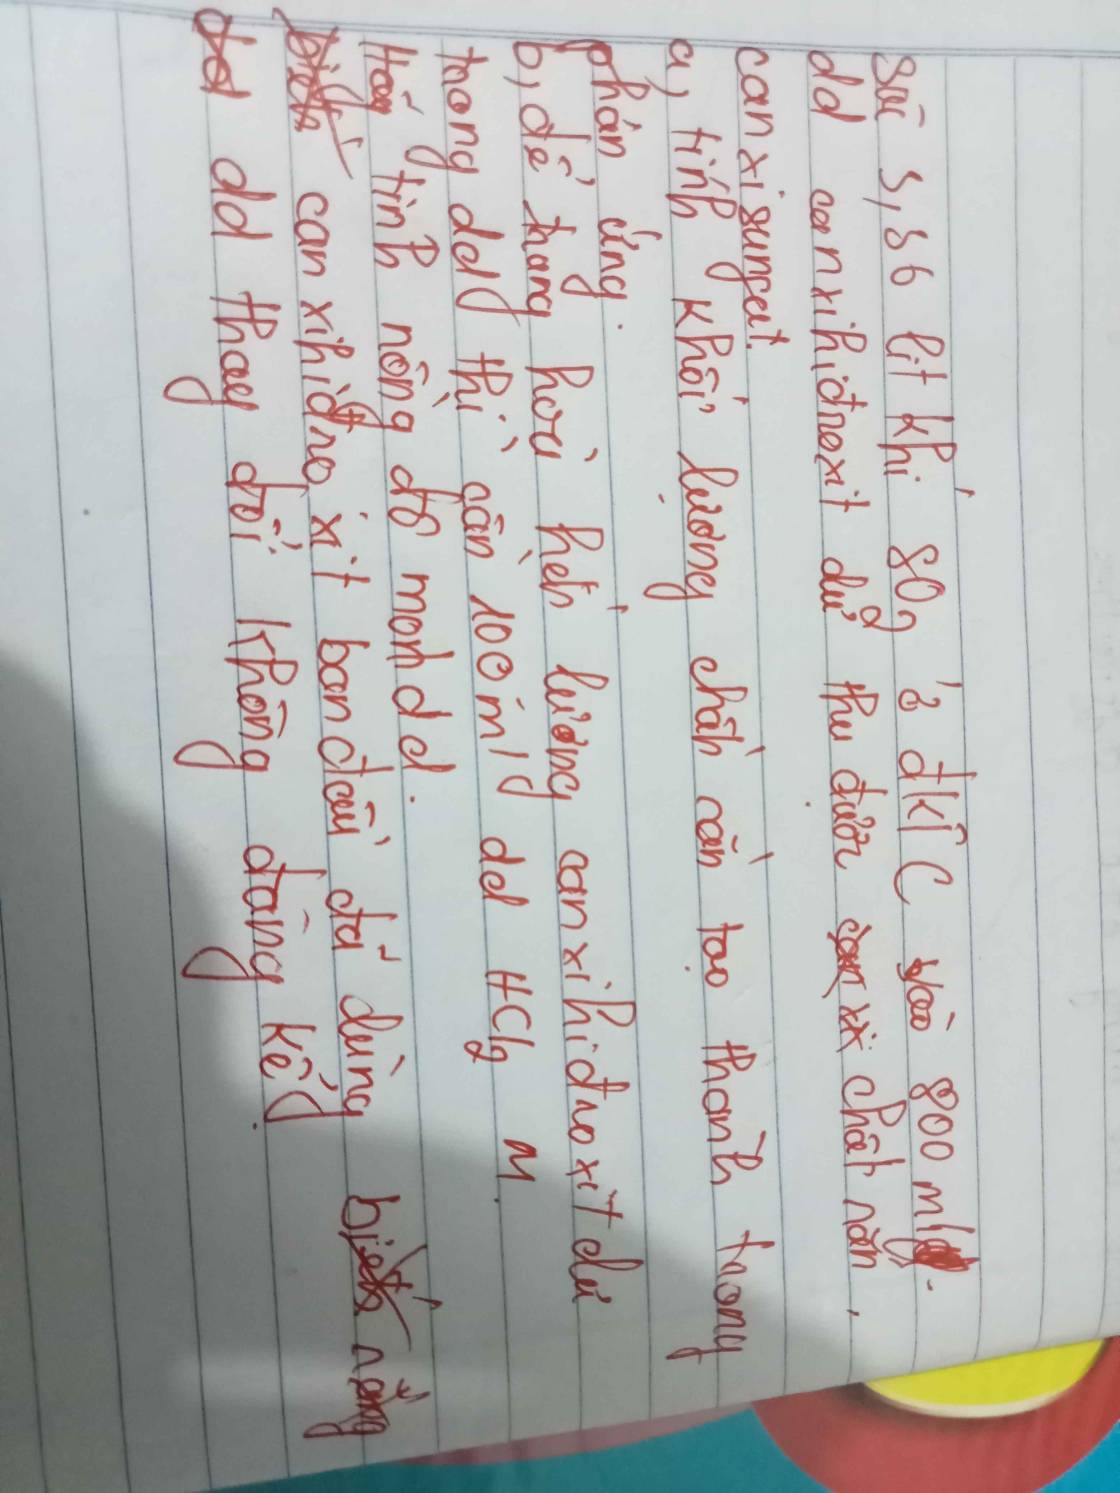 Sục 3,36 lit khí SO2 ở đktC vào 800 ml
dd canxihiđroxit dư thu được chất rắn,
canxisunfat.
a, tính khối lượng chất rắn tạo thành trong
phản ứng.
b, để trung hoà hết lượng canxihiđroxit dư
trong dd thì cần 100 ml dd HCl 2 M.
Hãy tính nồng độ mol dd.
canxihiđroxit ban đầu đã dùng
dd thay đổi không đáng kể.